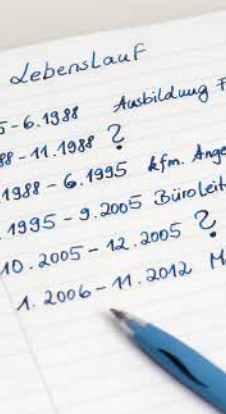 Lebenslauf
5-6.1988 Ausbildung F
88-11.1988 ?
.1988-6.1995 kfm. Ange
.1995-9.2005 Büroleit
10.2005-12.2005 ?
1.2006-11.2012 M